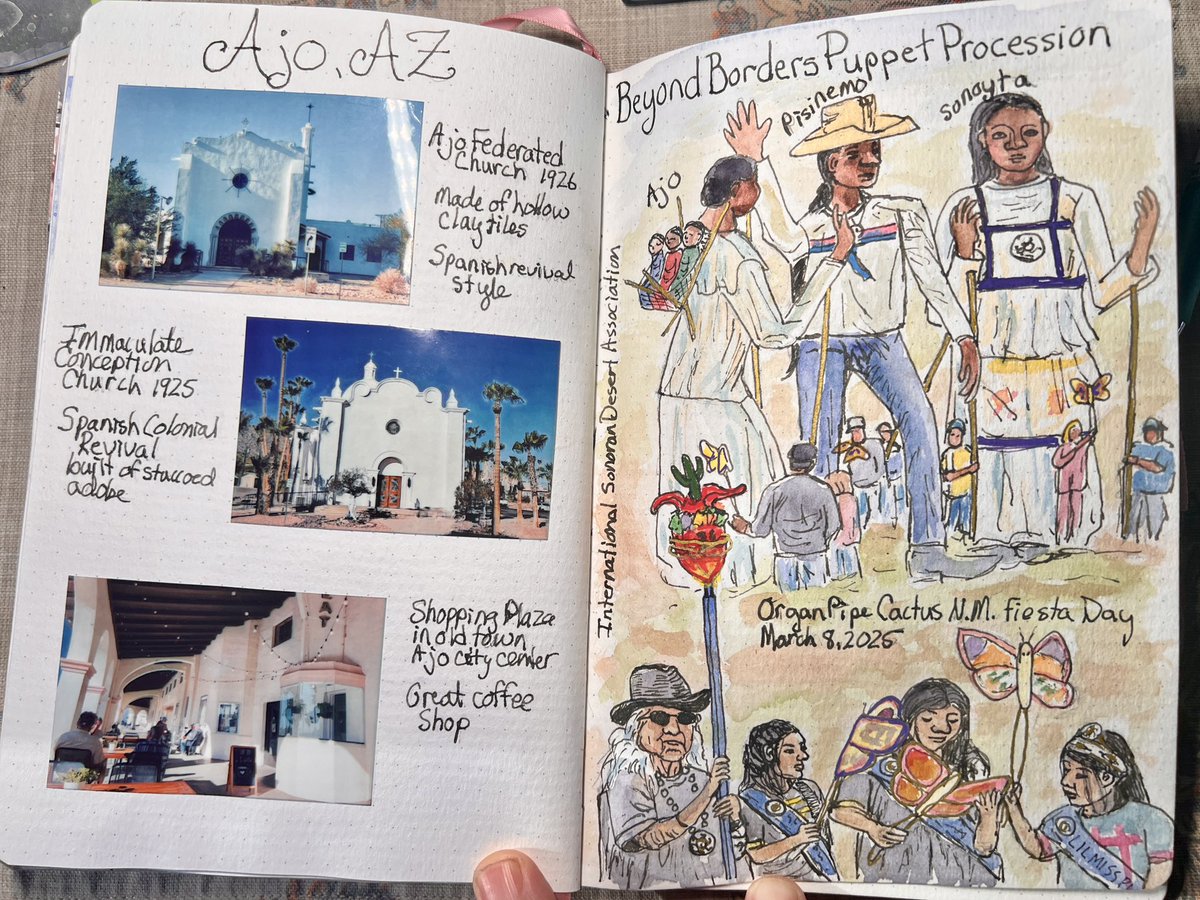 Ajo, AZ
Ajo Federated
Church 1926
Made of hollow
Clay tiles
Spanish revival
style
Immaculate
Conception
Church 1925
Spanish Colonial
Revival
built of stuccoed
adobe
Shopping Plaza
in old town
Ajo city center
Great coffee
Shop
Beyond Borders Puppet Procession
Ajo
Pisinemo
Sonoyta
International Sonoran Desert Association
Organ Pipe Cactus N.M. Fiesta Day
March 8, 2025
LIL MISS P